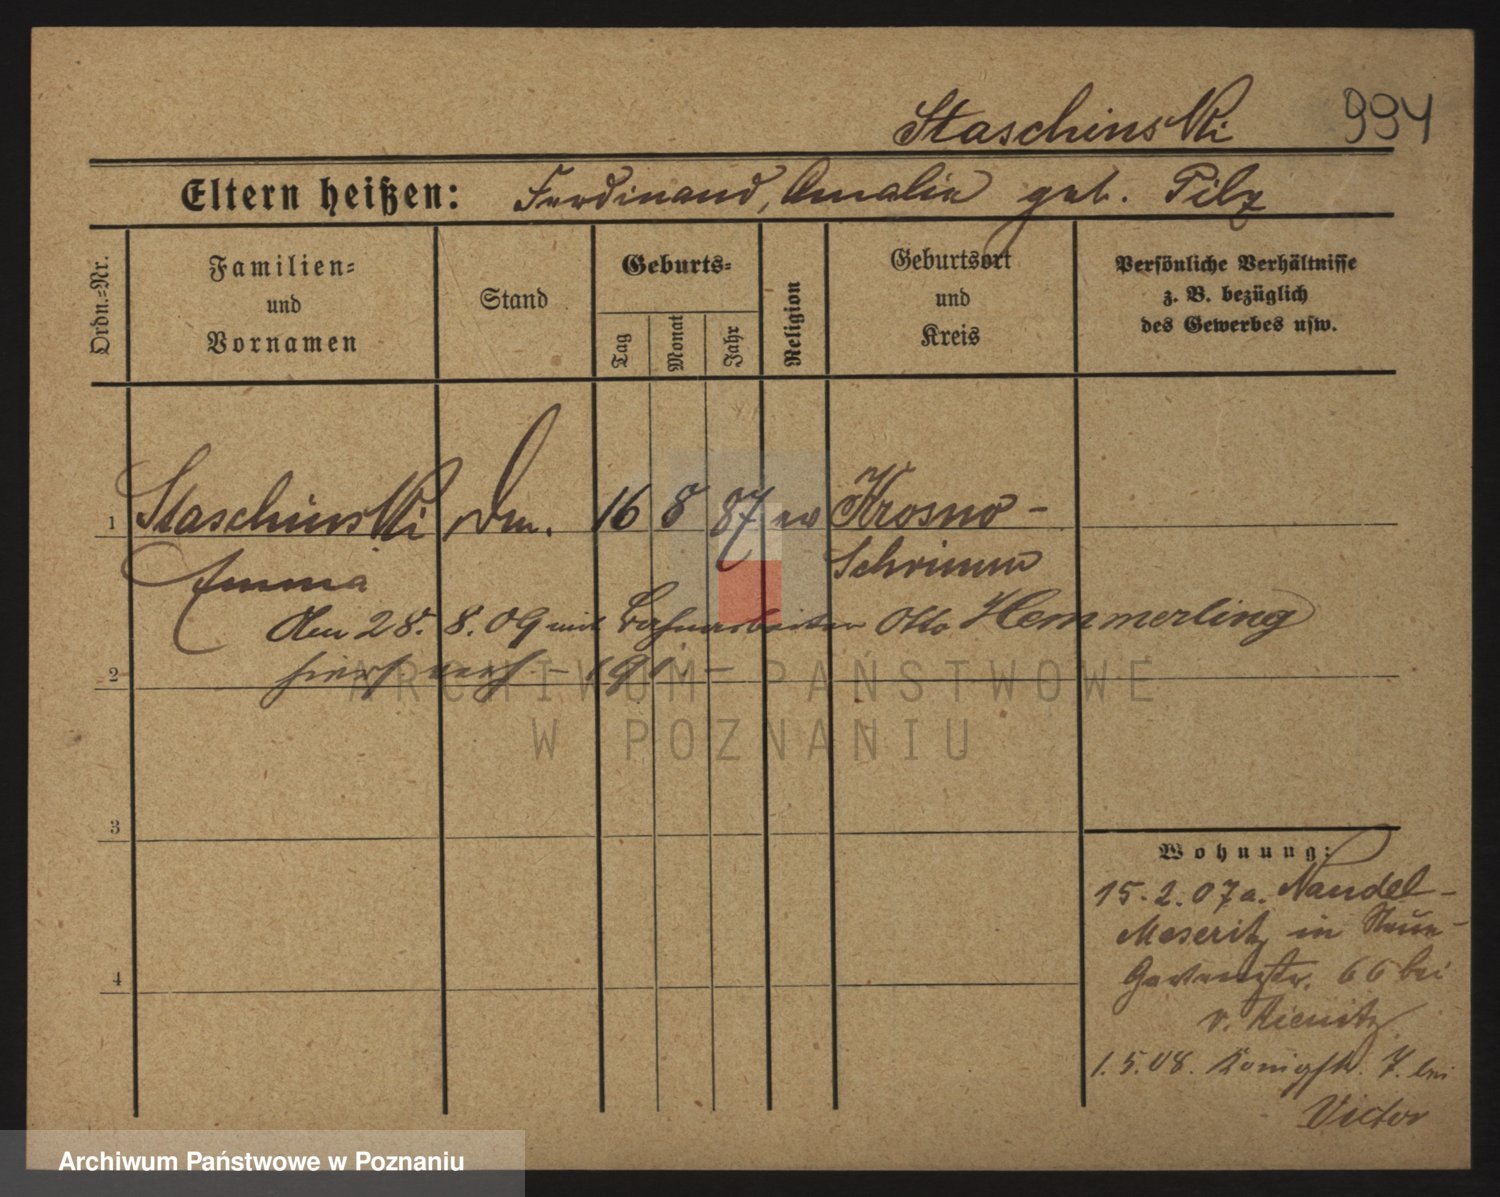 Staschinski 994
Eltern heißen: Ferdinand, Amalie geb. Pilz
Ordn.-Nr.
Familien-
und
Vornamen
Stand
Geburts-
Tag
Monat
Jahr
Religion
Geburtsort
und
Kreis
Persönliche Verhältnisse
z. B. bezüglich
des Gewerbes usw.
1 Staschinski 16 8 87 ev Krosno-
Emma Schrimm
Den 28. 8. 09 mit Bahnarbeiter Otto Hemmerling
2 hiers. verh. - 191 -
3
Wohnung:
15.2.07 a. Naudel-
Meseritz in Neue
4 Gartenstr. 66 bei
v.
1.5.08. Königstr. 7. bei
Victor
ARCHIWUM PAŃSTWOWE
W POZNANIU
Archiwum Państwowe w Poznaniu